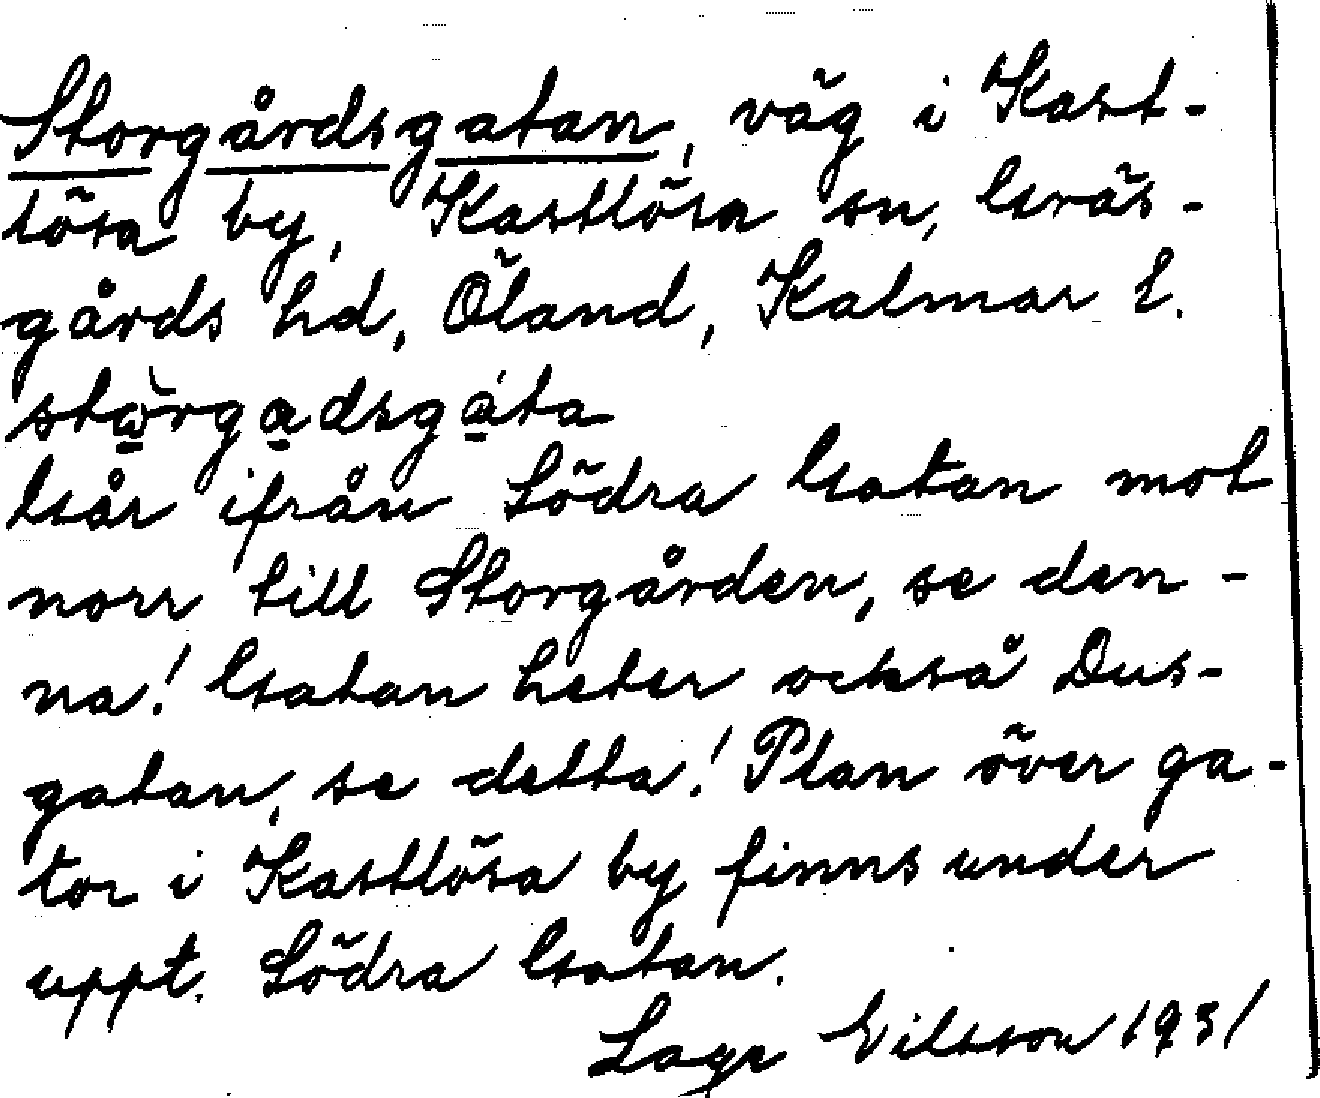 Storgårdsgatan, väg i Kast-
lösa by, Kastlösa sn, Gräs-
gårds hd, Öland, Kalmar l.
stωrgadsgata
Går ifrån Södra Gatan mot
norr till Storgården, se den-
na! Gatan heter också Dus-
gatan, se detta! Plan över ga-
tor i Kastlösa by finns under
uppt. Södra Gatan.
Lage Nilsson 1931